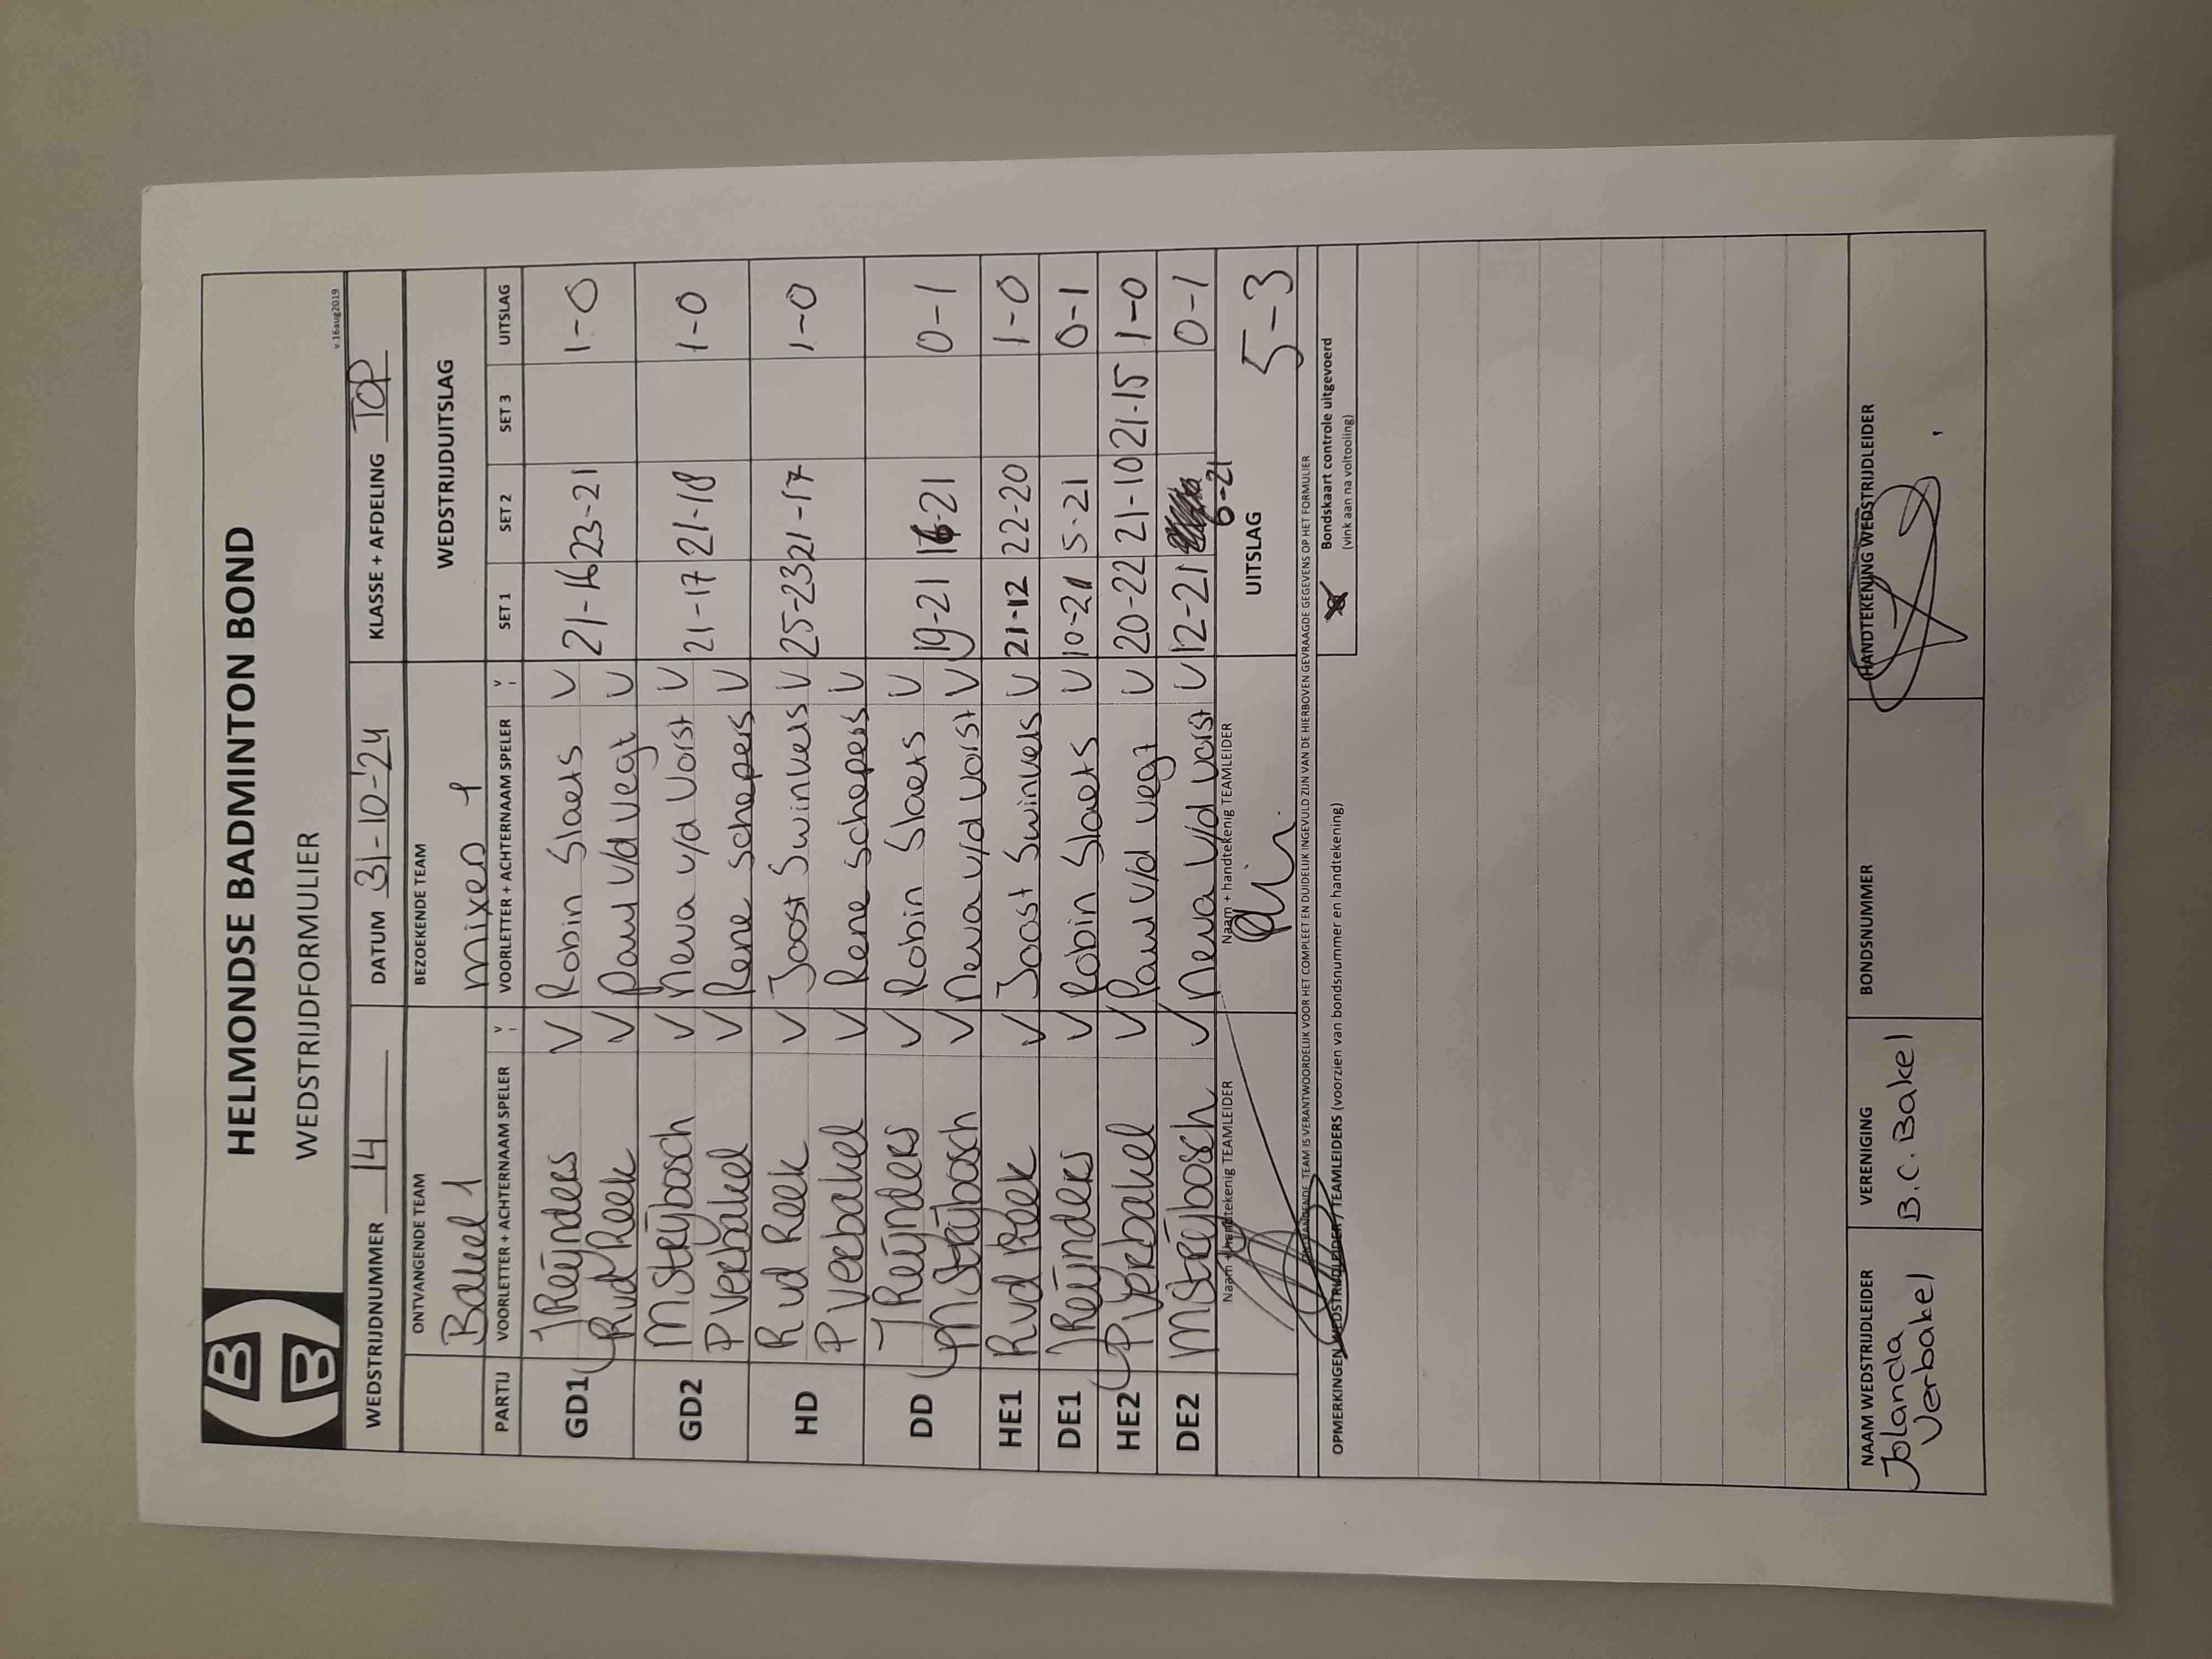 HELMONDSE BADMINTON BOND
WEDSTRIJDFORMULIER
v.16aug2019
WEDSTRIJDNUMMER 14 DATUM 31-10-'24 KLASSE + AFDELING TOP
ONTVANGENDE TEAM BEZOEKENDE TEAM WEDSTRIJDUITSLAG
Bakel 1 mixed 1
PARTIJ VOORLETTER + ACHTERNAAM SPELER V VOORLETTER + ACHTERNAAM SPELER V SET 1 SET 2 SET 3 UITSLAG
GD1 J Reijnders V Robin Slaets V 21-16 23-21 1-0
Rud Reek V Paul v/d Vegt V
GD2 M Strijbosch V Neva v/d Vorst V 21-17 21-18 1-0
P Verbakel V Rene Schepers V
HD Rud Reek V Joost Swinkels V 25-23 21-17 1-0
P Verbakel V Rene Schepers V
DD J Reijnders V Robin Slaets V 19-21 16-21 0-1
M Strijbosch V Neva v/d Vorst V
HE1 Rud Reek V Joost Swinkels V 21-12 22-20 1-0
DE1 J Reijnders V Robin Slaets V 10-21 5-21 0-1
HE2 P Verbakel V Paul v/d Vegt V 20-22 21-10 21-15 1-0
DE2 M Strijbosch V Neva v/d Vorst V 12-21 6-21 0-1
Naam + handtekenig TEAMLEIDER Naam + handtekenig TEAMLEIDER UITSLAG 5-3
ONTVANGENDE TEAM IS VERANTWOORDELIJK VOOR HET COMPLEET EN DUIDELIJK INGEVULD ZIJN VAN DE HIERBOVEN GEVRAAGDE GEGEVENS OP HET FORMULIER
OPMERKINGEN WEDSTRIJDLEIDER / TEAMLEIDERS (voorzien van bondsnummer en handtekening) Bondskaart controle uitgevoerd
(vink aan na voltooling)
NAAM WEDSTRIJDLEIDER VERENIGING BONDSNUMMER HANDTEKENING WEDSTRIJDLEIDER
Jolanda B.C. Bakel
Verbakel